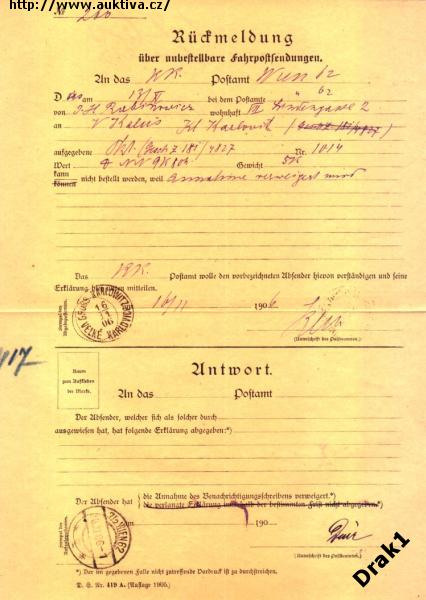 http://www.auktiva.cz/
№ 200
Rückmeldung
über unbestellbare Fahrpostsendungen.
An das KK. Postamt Wien 62
D as am 13/XI bei dem Postamte " 62
von wohnhaft VII Lindengasse 2
an V Kaluś Kl Karlovitz
aufgegebene Pkt. Nr. 1014
Wert Gewicht 5K
kann
können nicht bestellt werden, weil Annahme verweigert wird
Das KK. Postamt wolle den vorbezeichneten Absender hievon verständigen und seine
Erklärung hierüber mitteilen.
16/11 1906
GROSS KARLOWITZ
16 11 06
VELKÉ KARLOVICE
Stempel des Abgabepostamtes.
(Unterschrift des Postbeamten.)
417
Raum zum Aufkleben der Marke.
Antwort.
An das Postamt
Der Absender, welcher sich als solcher durch
ausgewiesen hat, hat folgende Erklärung abgegeben:*)
Der Absender hat { die Annahme des Benachrichtigungsschreibens verweigert.*)
die verlangte Erklärung innerhalb der bestimmten Frist nicht abgegeben.*)
am 190
7/2 WIEN 62
(Unterschrift des Postbeamten.)
*) Der im gegebenen Falle nicht zutreffende Vordruck ist zu durchstreichen.
D. S. Nr. 419 A. (Auflage 1905.)
Drak1